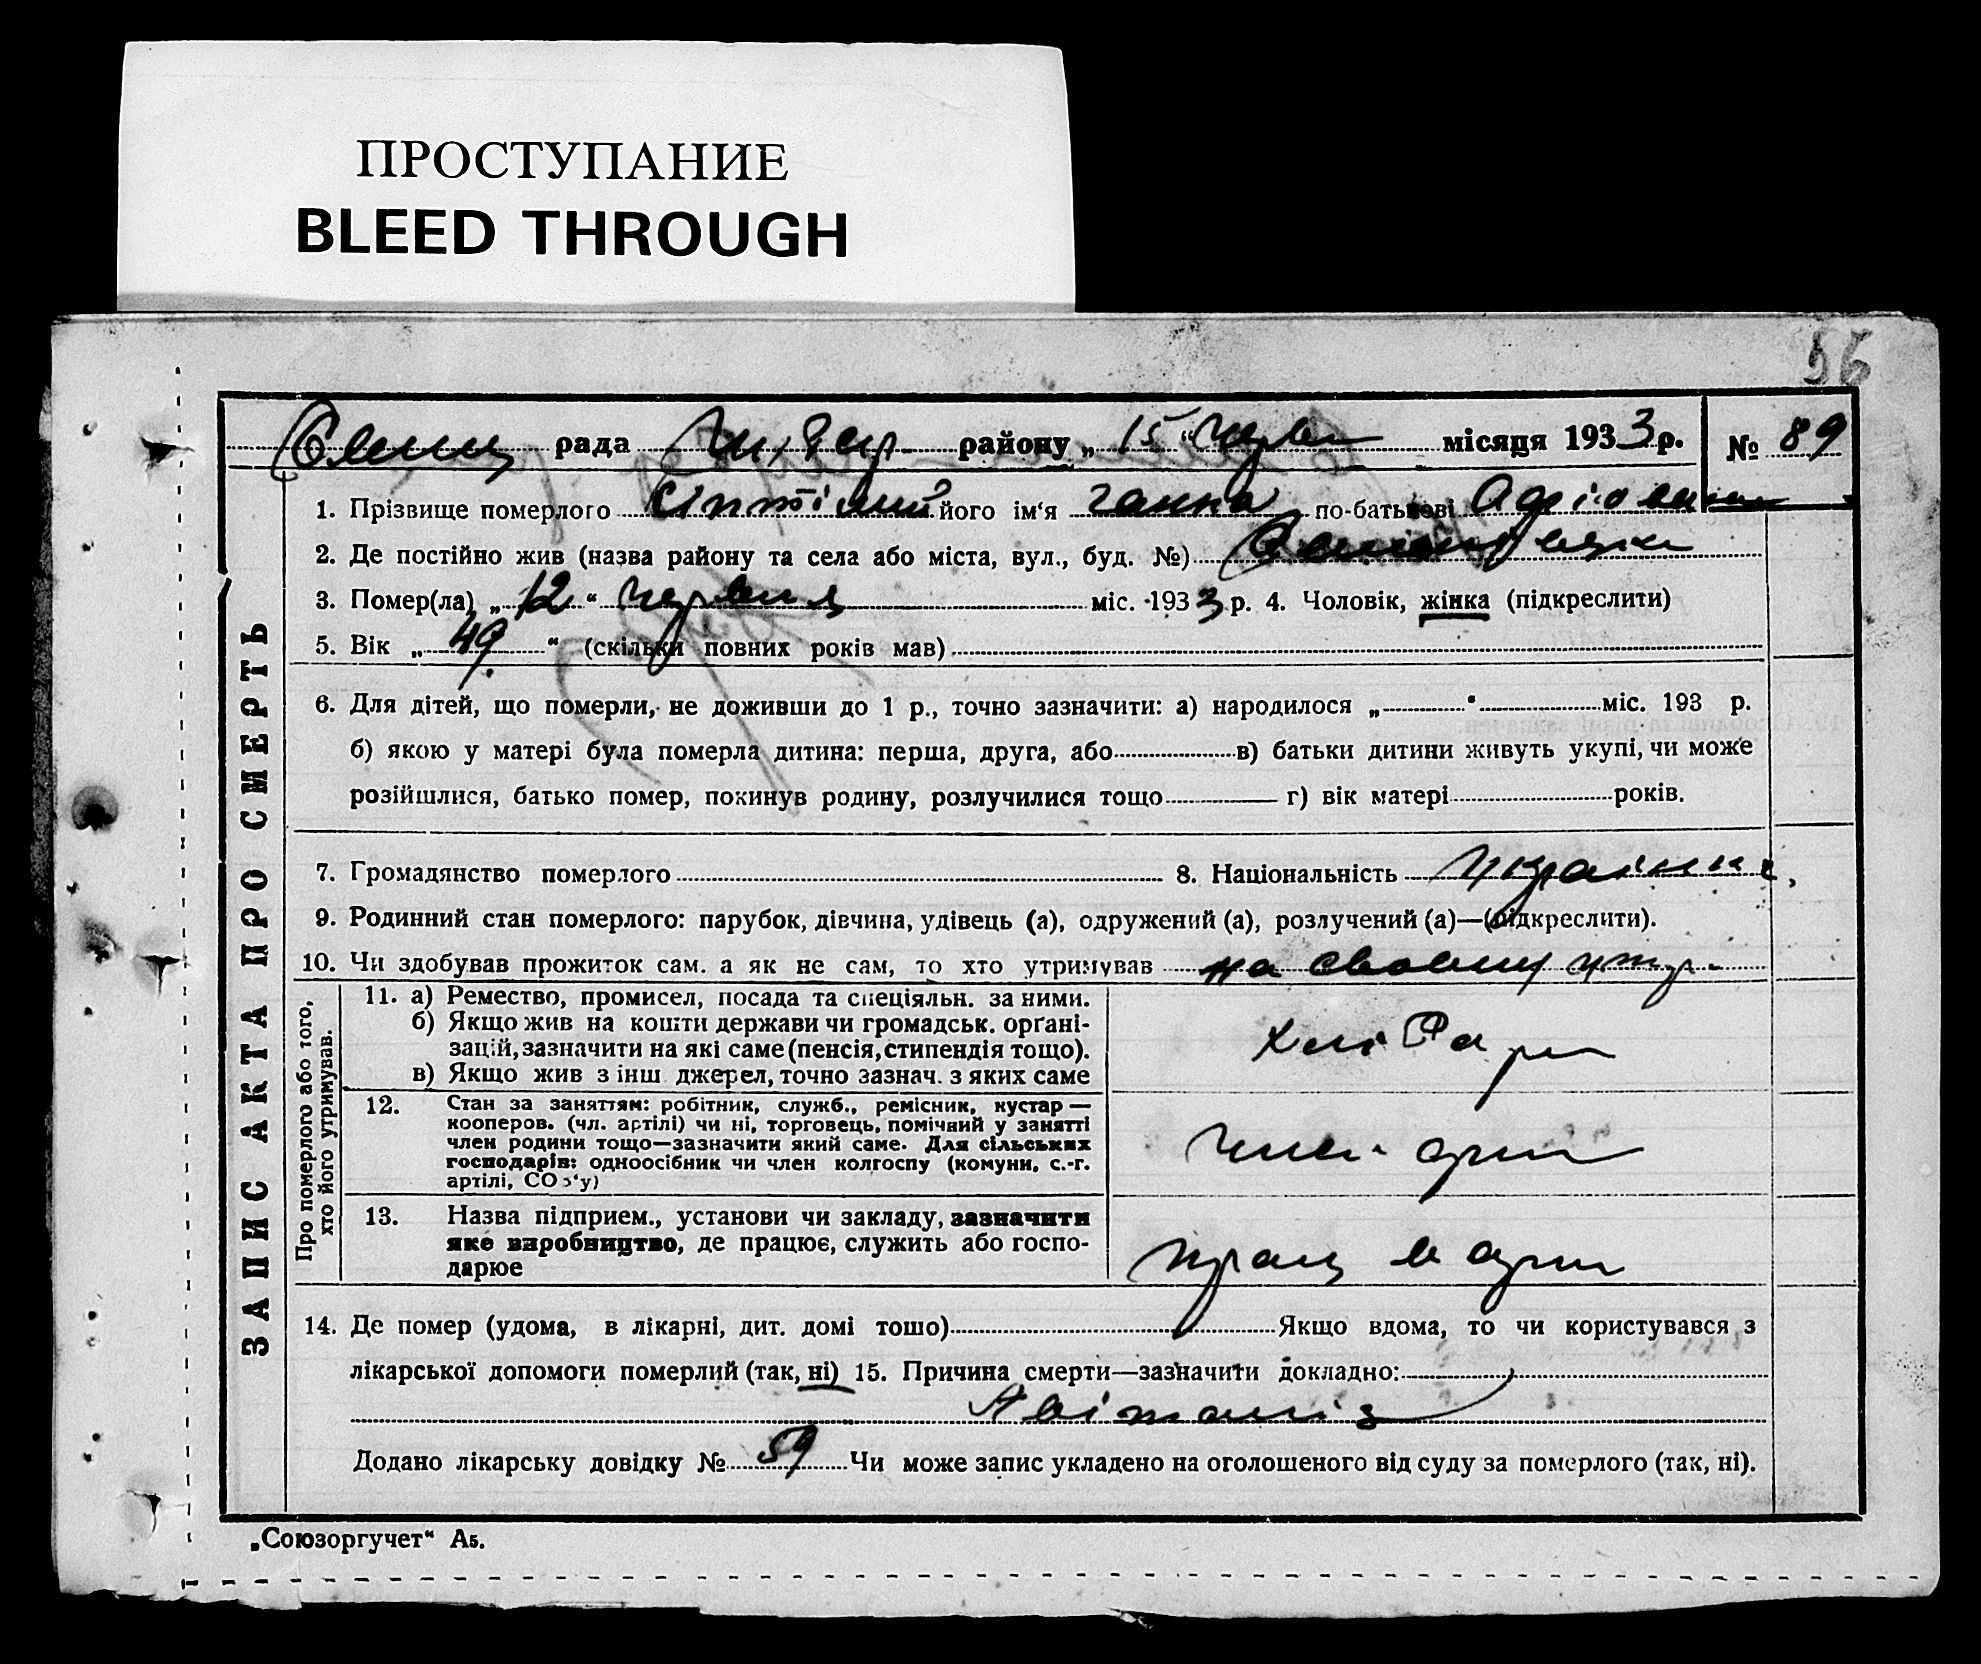 ПРОСТУПАНИЕ
BLEED THROUGH
56
рада району „ 15 “ червн місяця 1933 р. № 89
ЗАПИС АКТА ПРО СМЕРТЬ
1. Прізвище померлого його ім‘я Ганна по-батькові
2. Де постійно жив (назва району та села або міста, вул., буд. №)
3. Помер(ла) „ 12 “ червня міс. 1933 р. 4. Чоловік, жінка (підкреслити)
5. Вік „ 49 “ (скільки повних років мав)
6. Для дітей, що померли, не доживши до 1 р., точно зазначити: а) народилося „ “ міс. 193 р.
б) якою у матері була померла дитина: перша, друга, або в) батьки дитини живуть укупі, чи може
розійшлися, батько помер, покинув родину, розлучилися тощо г) вік матері років.
7. Громадянство померлого 8. Національність українка
9. Родинний стан померлого: парубок, дівчина, удівець (а), одружений (а), розлучений (а)—(підкреслити).
10. Чи здобував прожиток сам. а як не сам, то хто утримував на своєму утр.
Про померлого або того,
хто його утримував.
11. а) Ремество, промисел, посада та спеціяльн. за ними.
б) Якщо жив на кошти держави чи громадськ. орґані-
зацій, зазначити на які саме (пенсія, стипендія тощо).
в) Якщо жив з інш джерел, точно зазнач. з яких саме
хлібар
12. Стан за заняттям: робітник, служб., ремісник, кустар —
кооперов. (чл. артілі) чи ні, торговець, помічний у занятті
член родини тощо—зазначити який саме. Для сільських
господарів: одноосібник чи член колгоспу (комуни, с.-г.
артілі, СОз‘у)
член арт
13. Назва підприєм., установи чи закладу, зазначити
яке виробництво, де працює, служить або госпо-
дарює
прац в арт
14. Де помер (удома, в лікарні, дит. домі тощо) Якщо вдома, то чи користувався з
лікарської допомоги померлий (так, ні) 15. Причина смерти—зазначити докладно:
Авітаміз
Додано лікарську довідку № 59 Чи може запис укладено на оголошеного від суду за померлого (так, ні).
„Союзоргучет“ А5.